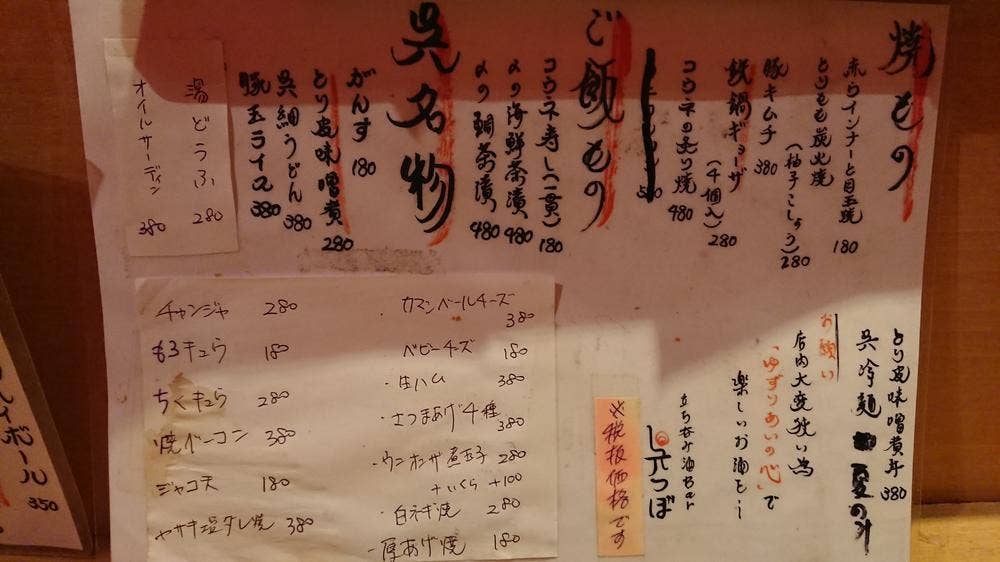 焼もの
赤ウインナーと目玉焼 180
とりもも炭火焼
(柚子こしょう) 280
豚キムチ 380
鉄鍋ギョーザ
(4個入) 280
コウネの炙り焼 480
ご飯もの
コウネ寿し(一貫) 180
〆の海鮮茶漬 480
〆の鯛茶漬 480
呉名物
がんす 180
とり皮味噌煮 280
呉細うどん 380
豚玉ライス 380
湯どうふ 280
オイルサーディン 380
とり皮味噌煮丼 380
呉冷麺 夏のみ
お願い
店内大変狭い為
「ゆずりあいの心」で
楽しいお酒を!
立ち呑み酒Bar
元つぼ
※税抜価格です
・カマンベールチーズ 380
・ベビーチーズ 180
・生ハム 380
・さつまあげ4種 380
・ウニホンザ煮玉子 280
+いくら +100
・白ネギ焼 280
・厚あげ焼 180
チャンジャ 280
もろキュウ 180
ちくキュウ 280
焼ベーコン 380
ジャコ天 180
ヤサキ塩タレ焼 380
イボール
350